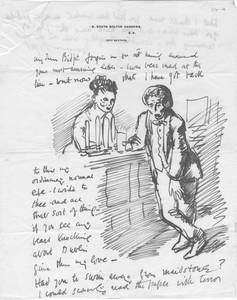 8, SOUTH BOLTON GARDENS,
S.W.
my dear Bridgit forgive me for not having answered
your most amusing letter - I was very mad at the
time - but now that I have got back
to this my
ordinary normal
life - I write to
thee - and all
that sort of thing -
if you see any
bears knocking
about
give them my love -
Had you to swim away from maidstone?
I could scarcely read the paper with terror